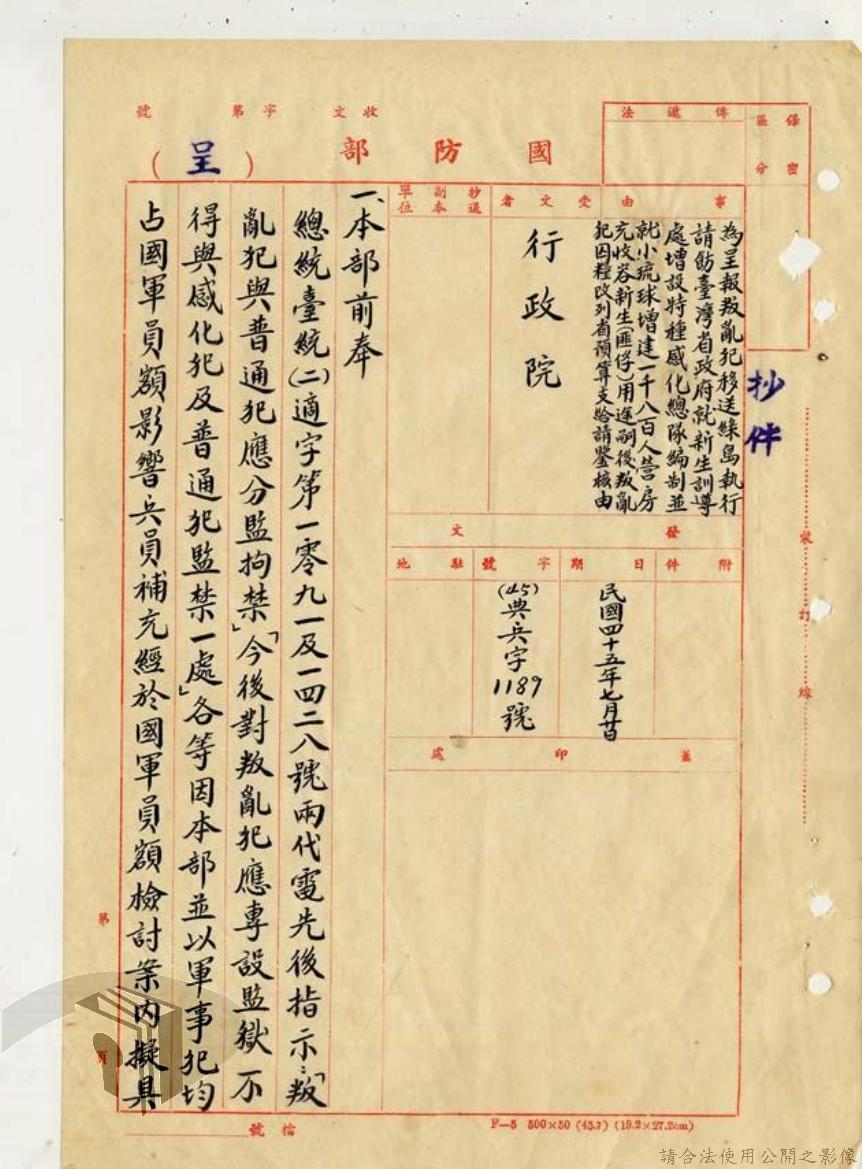 收文 字第 號
國防部（呈）
保密區分
傳遞法
抄件
事由
為呈報叛亂犯移送綠島執行
請飭臺灣省政府就新生訓導
處增設特種感化總隊編制並
就小琉球增建一千八百人營房
充收容新生(匪俘)用逕嗣後叛亂
犯囚糧改列省預算支給請鑒核由
受文者
行政院
抄送副本單位
發文
附件
日期
民國四十五年七月廿日
字號
(45)典兵字1189號
駐地
蓋印處
一、本部前奉
總統臺統(二)適字第一零九一及一四二八號兩代電先後指示：「叛
亂犯與普通犯應分監拘禁」「今後對叛亂犯應專設監獄不
得與感化犯及普通犯監禁一處」各等因本部並以軍事犯均
占國軍員額影響兵員補充經於國軍員額檢討案內擬具
裝訂線
第 頁
檔號
F—5 500×50 (45.7) (19.2×27.2cm)
請合法使用公開之影像